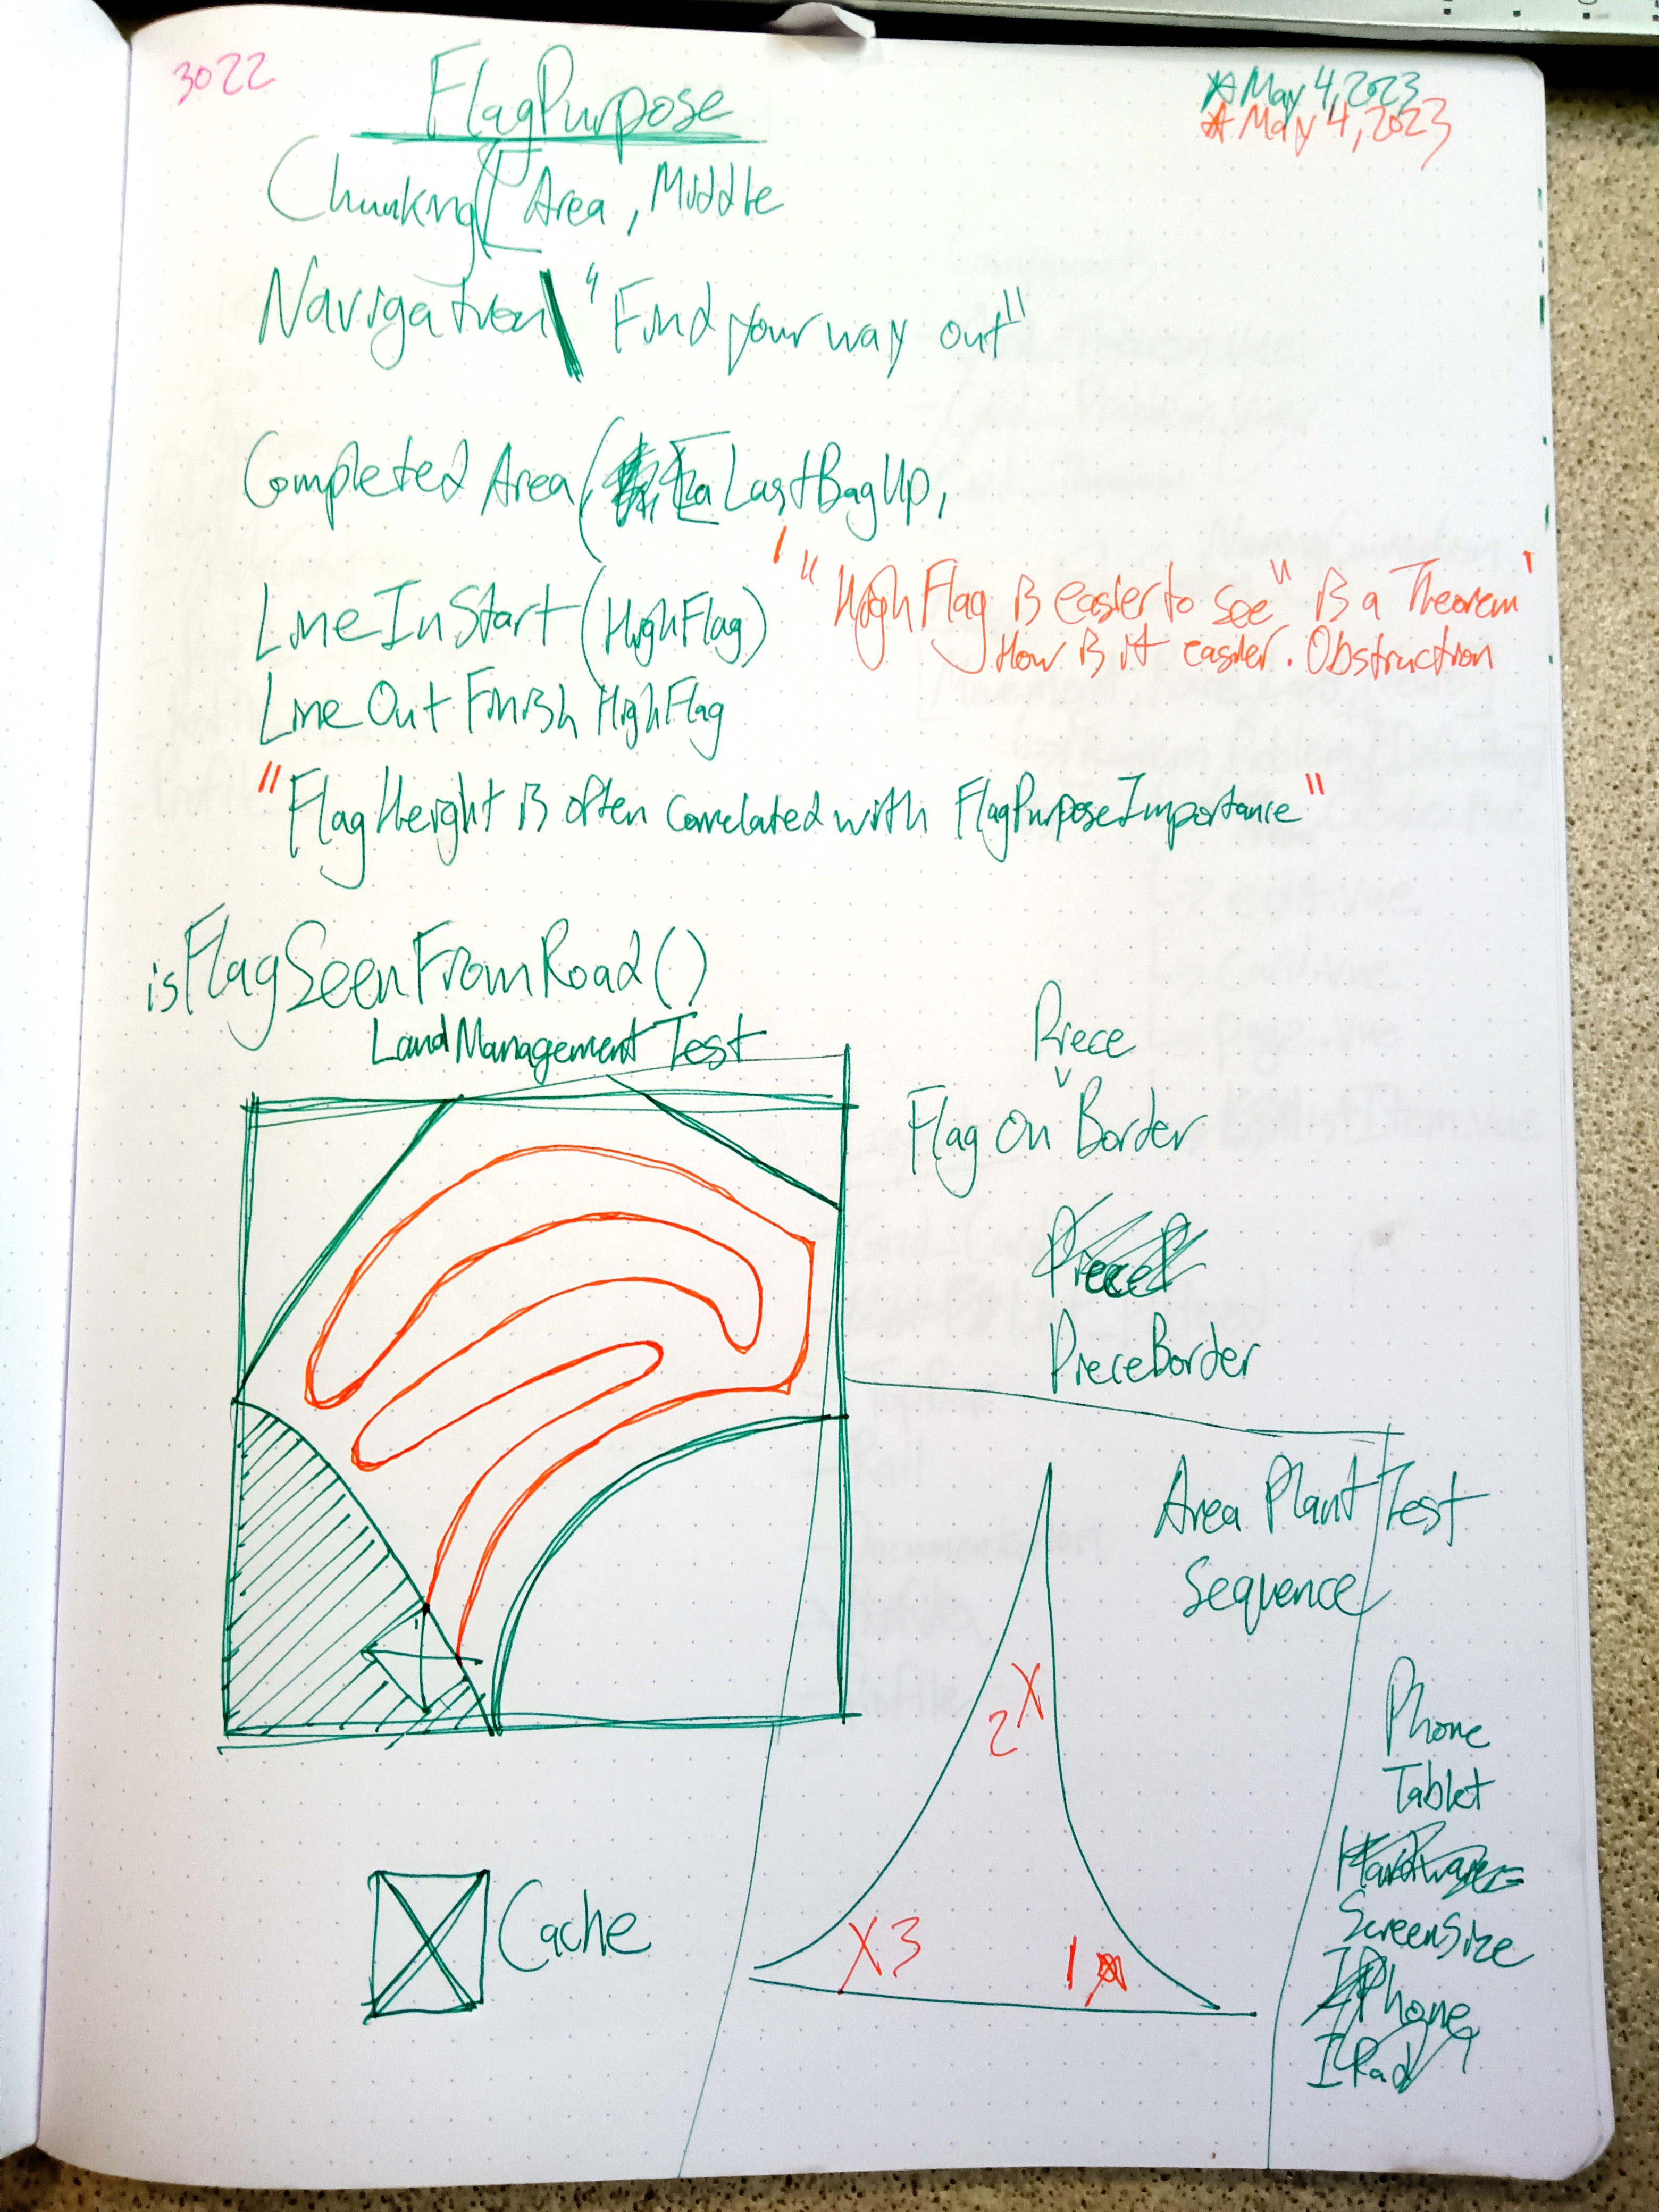 3022
FlagPurpose
☆ May 4, 2023
☆ May 4, 2023
Chunking [Area, Middle
Navigation \ "Find your way out"
Completed Area ( LastBagUp,
LineInStart (HighFlag)
' "HighFlag is easier to see" is a Theorem '
How is it easier. Obstruction
Line Out Finish HighFlag
"FlagHeight is often correlated with FlagPurposeImportance"
isFlagSeenFromRoad()
LandManagement Test
Piece
Flag On ˅ Border
Piece
PieceBorder
Area Plant Test
Sequence
2 X
X 3
1
Cache
Phone
Tablet
Hardware
ScreenSize
IPhone
IPad